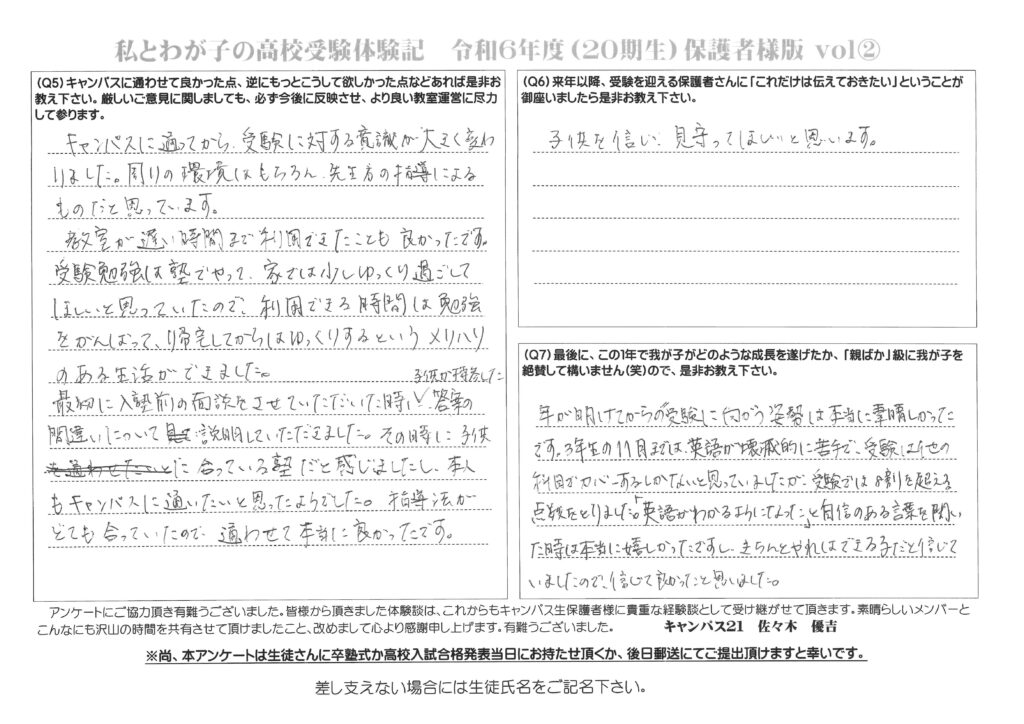 私とわが子の高校受験体験記　令和6年度（20期生）保護者様版 vol②
（Q5）キャンパスに通わせて良かった点、逆にもっとこうして欲しかった点などあれば是非お
教え下さい。厳しいご意見に関しましても、必ず今後に反映させ、より良い教室運営に尽力
して参ります。
キャンパスに通ってから、受験に対する意識が大きく変わ
りました。周りの環境はもちろん、先生方の指導による
ものだと思っています。
教室が遅い時間まで利用できたことも良かったです。
受験勉強は塾でやって、家では少しゆっくり過ごして
ほしいと思っていたので、利用できる時間は勉強
をがんばって、帰宅してからはゆっくりするという メリハリ
のある生活ができました。
子供が持参した
最初に入塾前の面談をさせていただいた時に✓答案の
間違いについて 説明していただきました。その時に子供
に合っている塾だと感じましたし、本人
もキャンパスに通いたいと思ったようでした。指導法が
とても合っていたので、通わせて本当に良かったです。
（Q6）来年以降、受験を迎える保護者さんに「これだけは伝えておきたい」ということが
御座いましたら是非お教え下さい。
子供を信じ、見守ってほしいと思います。
（Q7）最後に、この1年で我が子がどのような成長を遂げたか、「親ばか」級に我が子を
絶賛して構いません（笑）ので、是非お教え下さい。
年が明けてからの受験に向かう姿勢は本当に素晴しかった
です。3年生の11月までは、英語が壊滅的に苦手で、受験は他の
科目でカバーするしかないと思っていましたが、受験では8割を超える
点数をとりました。「英語がわかるようになった」と自信のある言葉を聞い
た時は本当に嬉しかったですし、きちんとやればできる子だと信じて
いましたので、信じて良かったと思いました。
アンケートにご協力頂き有難うございました。皆様から頂きました体験談は、これからもキャンパス生保護者様に貴重な経験談として受け継がせて頂きます。素晴らしいメンバーと
こんなにも沢山の時間を共有させて頂けましたこと、改めまして心より感謝申し上げます。有難うございました。　キャンパス21　佐々木　優吉
※尚、本アンケートは生徒さんに卒塾式か高校入試合格発表当日にお持たせ頂くか、後日郵送にてご提出頂けますと幸いです。
差し支えない場合には生徒氏名をご記名下さい。